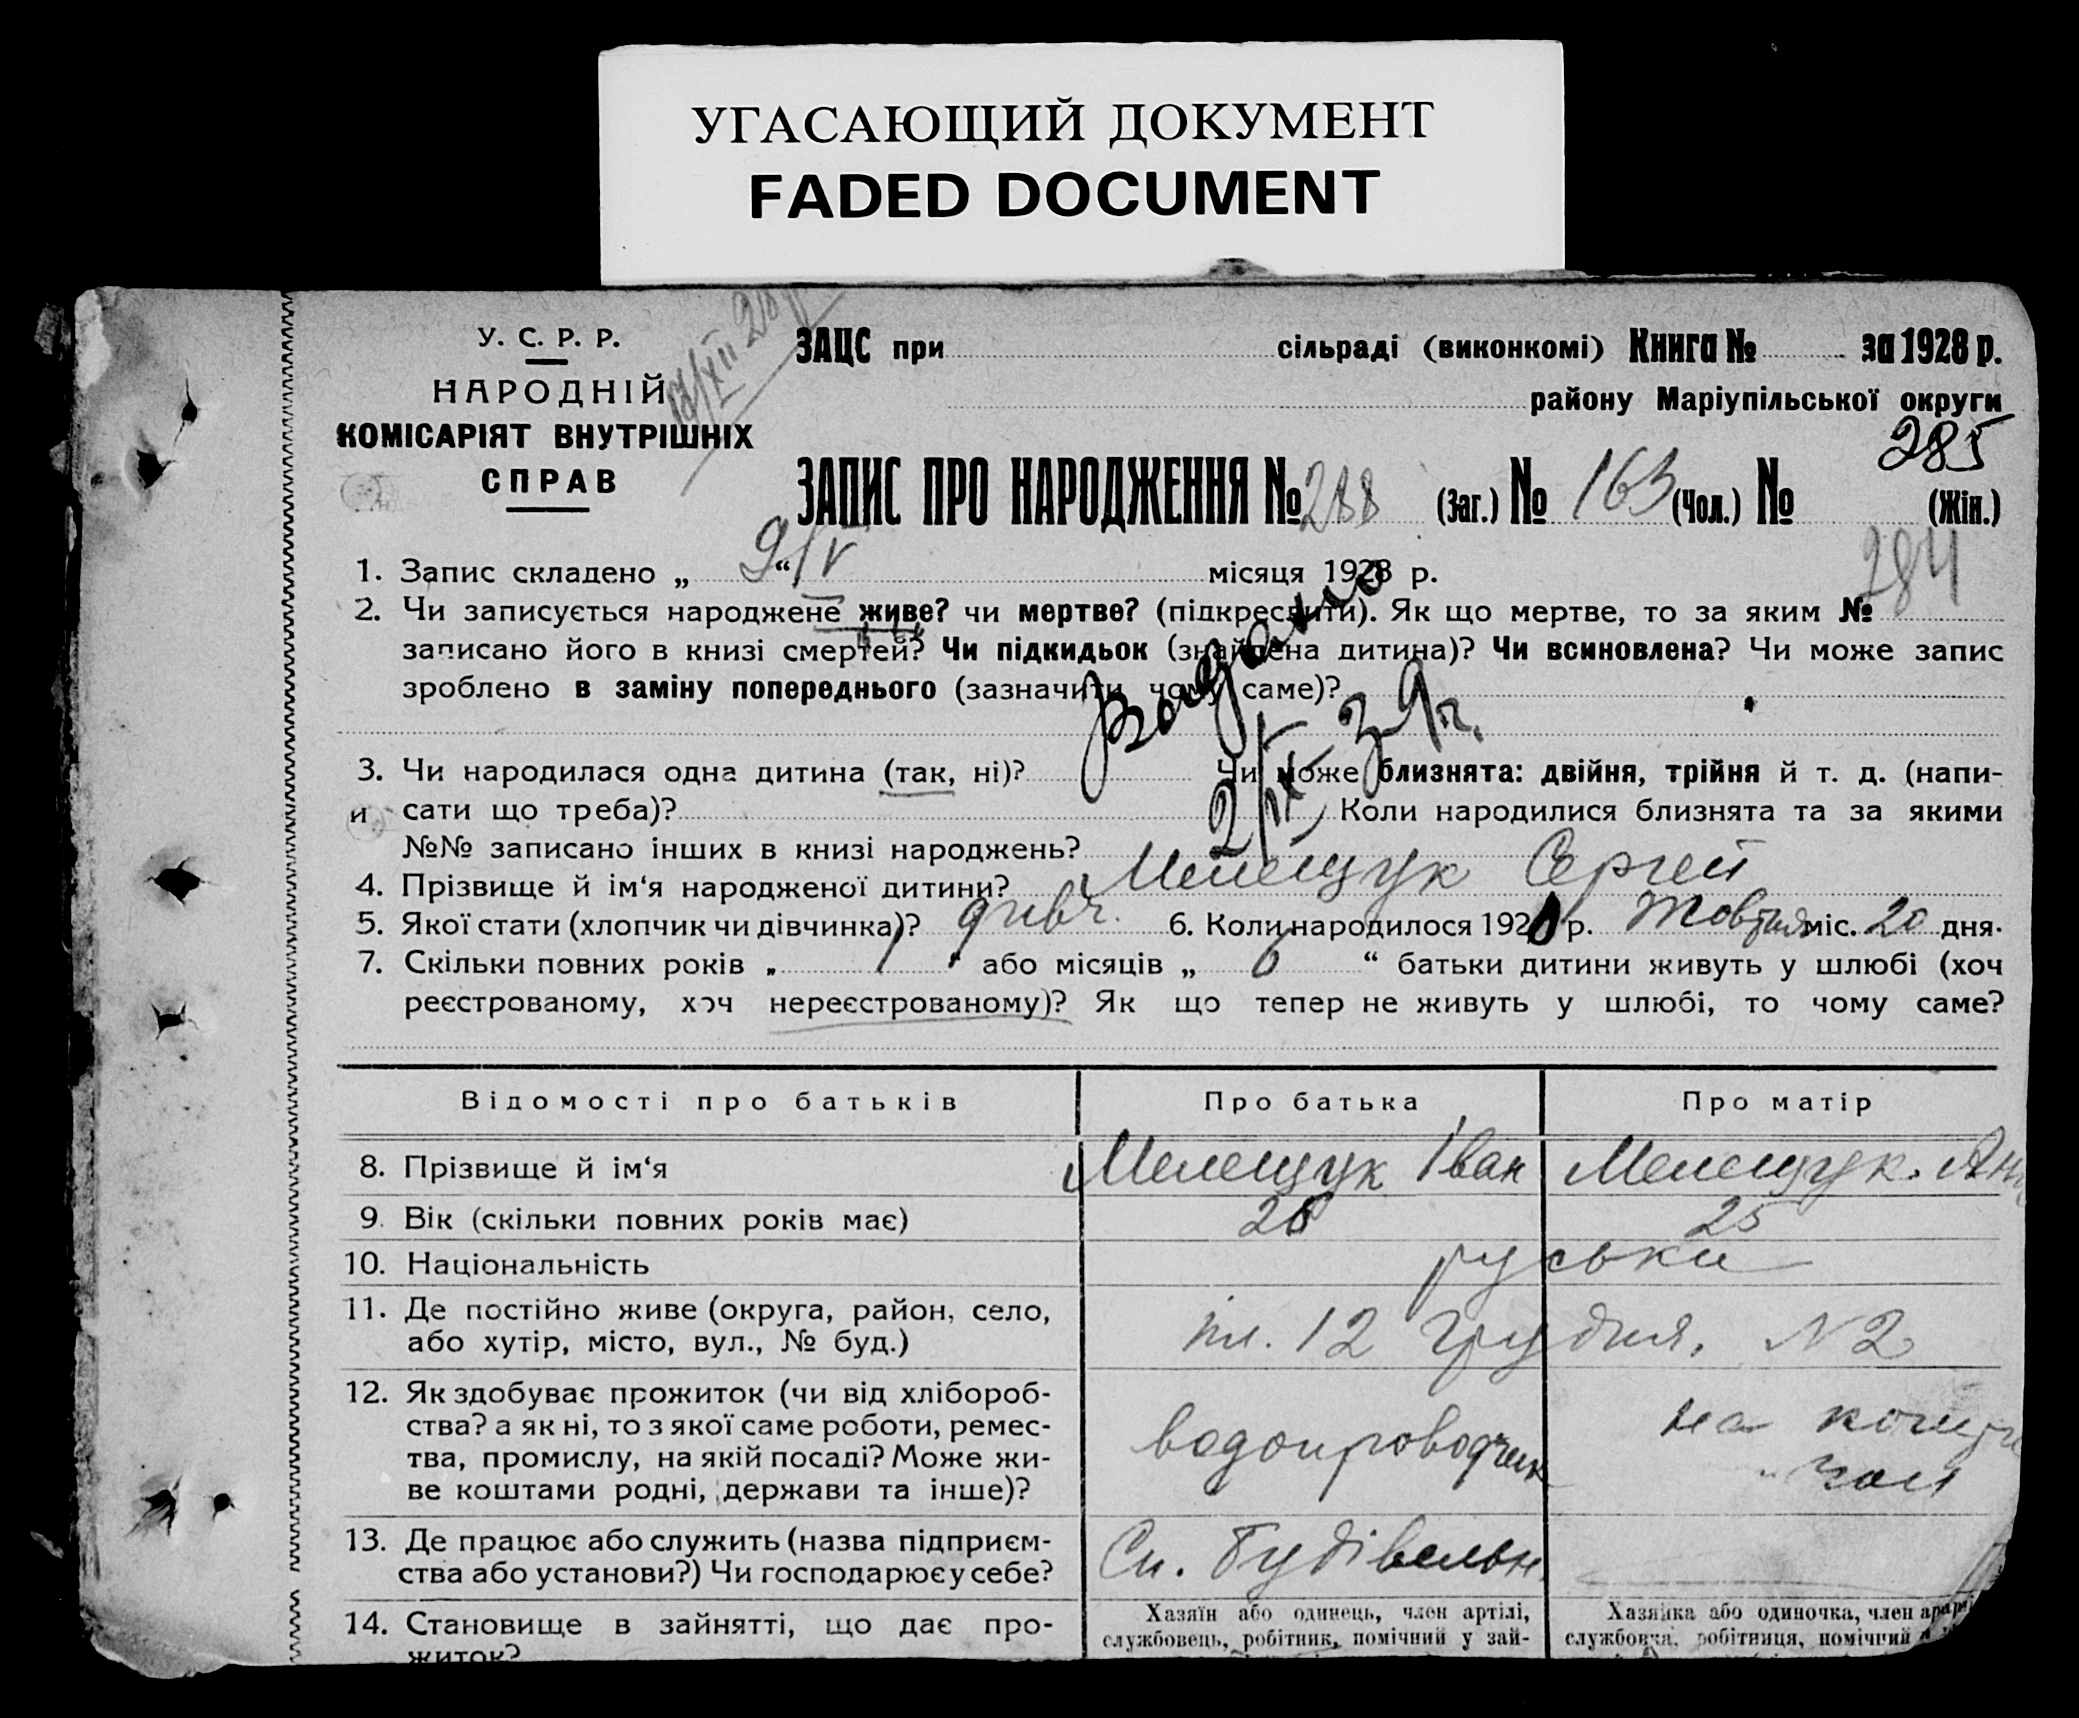 УГАСАЮЩИЙ ДОКУМЕНТ
FADED DOCUMENT
У. С. Р. Р.
НАРОДНІЙ
КОМІСАРІЯТ ВНУТРІШНІХ
СПРАВ
ЗАЦС при сільраді (виконкомі) Книга № за 1928 р.
району Маріупільської округи
285
ЗАПИС ПРО НАРОДЖЕННЯ № 288 (Заг.) № 163 (Чол.) № (Жін.)
284
1. Запис складено „ 9/V “ місяця 1928 р.
2. Чи записується народжене живе? чи мертве? (підкреслити). Як що мертве, то за яким №
записано його в книзі смертей? Чи підкидьок (знайдена дитина)? Чи всиновлена? Чи може запис
зроблено в заміну попереднього (зазначити чому саме)?
Видано
2/IX 39г.
3. Чи народилася одна дитина (так, ні)? Чи може близнята: двійня, трійня й т. д. (напи-
сати що треба)? Коли народилися близнята та за якими
№№ записано інших в книзі народжень?
4. Прізвище й ім‘я народженої дитини? Мелещук Сергей
5. Якої стати (хлопчик чи дівчинка)? 6. Коли народилося 192 р. Жовтня міс. 20 дня.
7. Скільки повних років „ 1 “ або місяців „ 6 “ батьки дитини живуть у шлюбі (хоч
реєстрованому, хоч нереєстрованому)? Як що тепер не живуть у шлюбі, то чому саме?
Відомості про батьків Про батька Про матір
8. Прізвище й ім‘я Мелещук Іван Мелещук Ан
9. Вік (скільки повних років має) 26 25
10. Національність руськи
11. Де постійно живе (округа, район, село,
або хутір, місто, вул., № буд.) пл. 12 Грудня, N 2
12. Як здобуває прожиток (чи від хлібороб-
ства? а як ні, то з якої саме роботи, ремес-
тва, промислу, на якій посаді? Може жи-
ве коштами родні, держави та інше)?
водопроводчик
на
13. Де працює або служить (назва підприєм-
ства або установи?) Чи господарює у себе?
Сп. Будівельн.
14. Становище в зайнятті, що дає про-
житок?
Хазяїн або одинець, член артілі,
службовець, робітник, помічний у зай-
Хазяйка або одиночка, член арті
службовка, робітниця, помічний